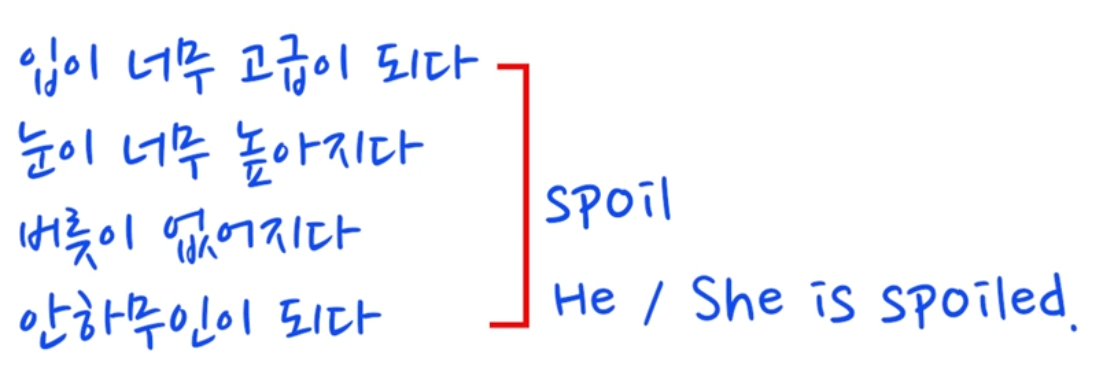 입이 너무 고급이 되다
눈이 너무 높아지다
버릇이 없어지다
안하무인이 되다
spoil
He / She is spoiled.